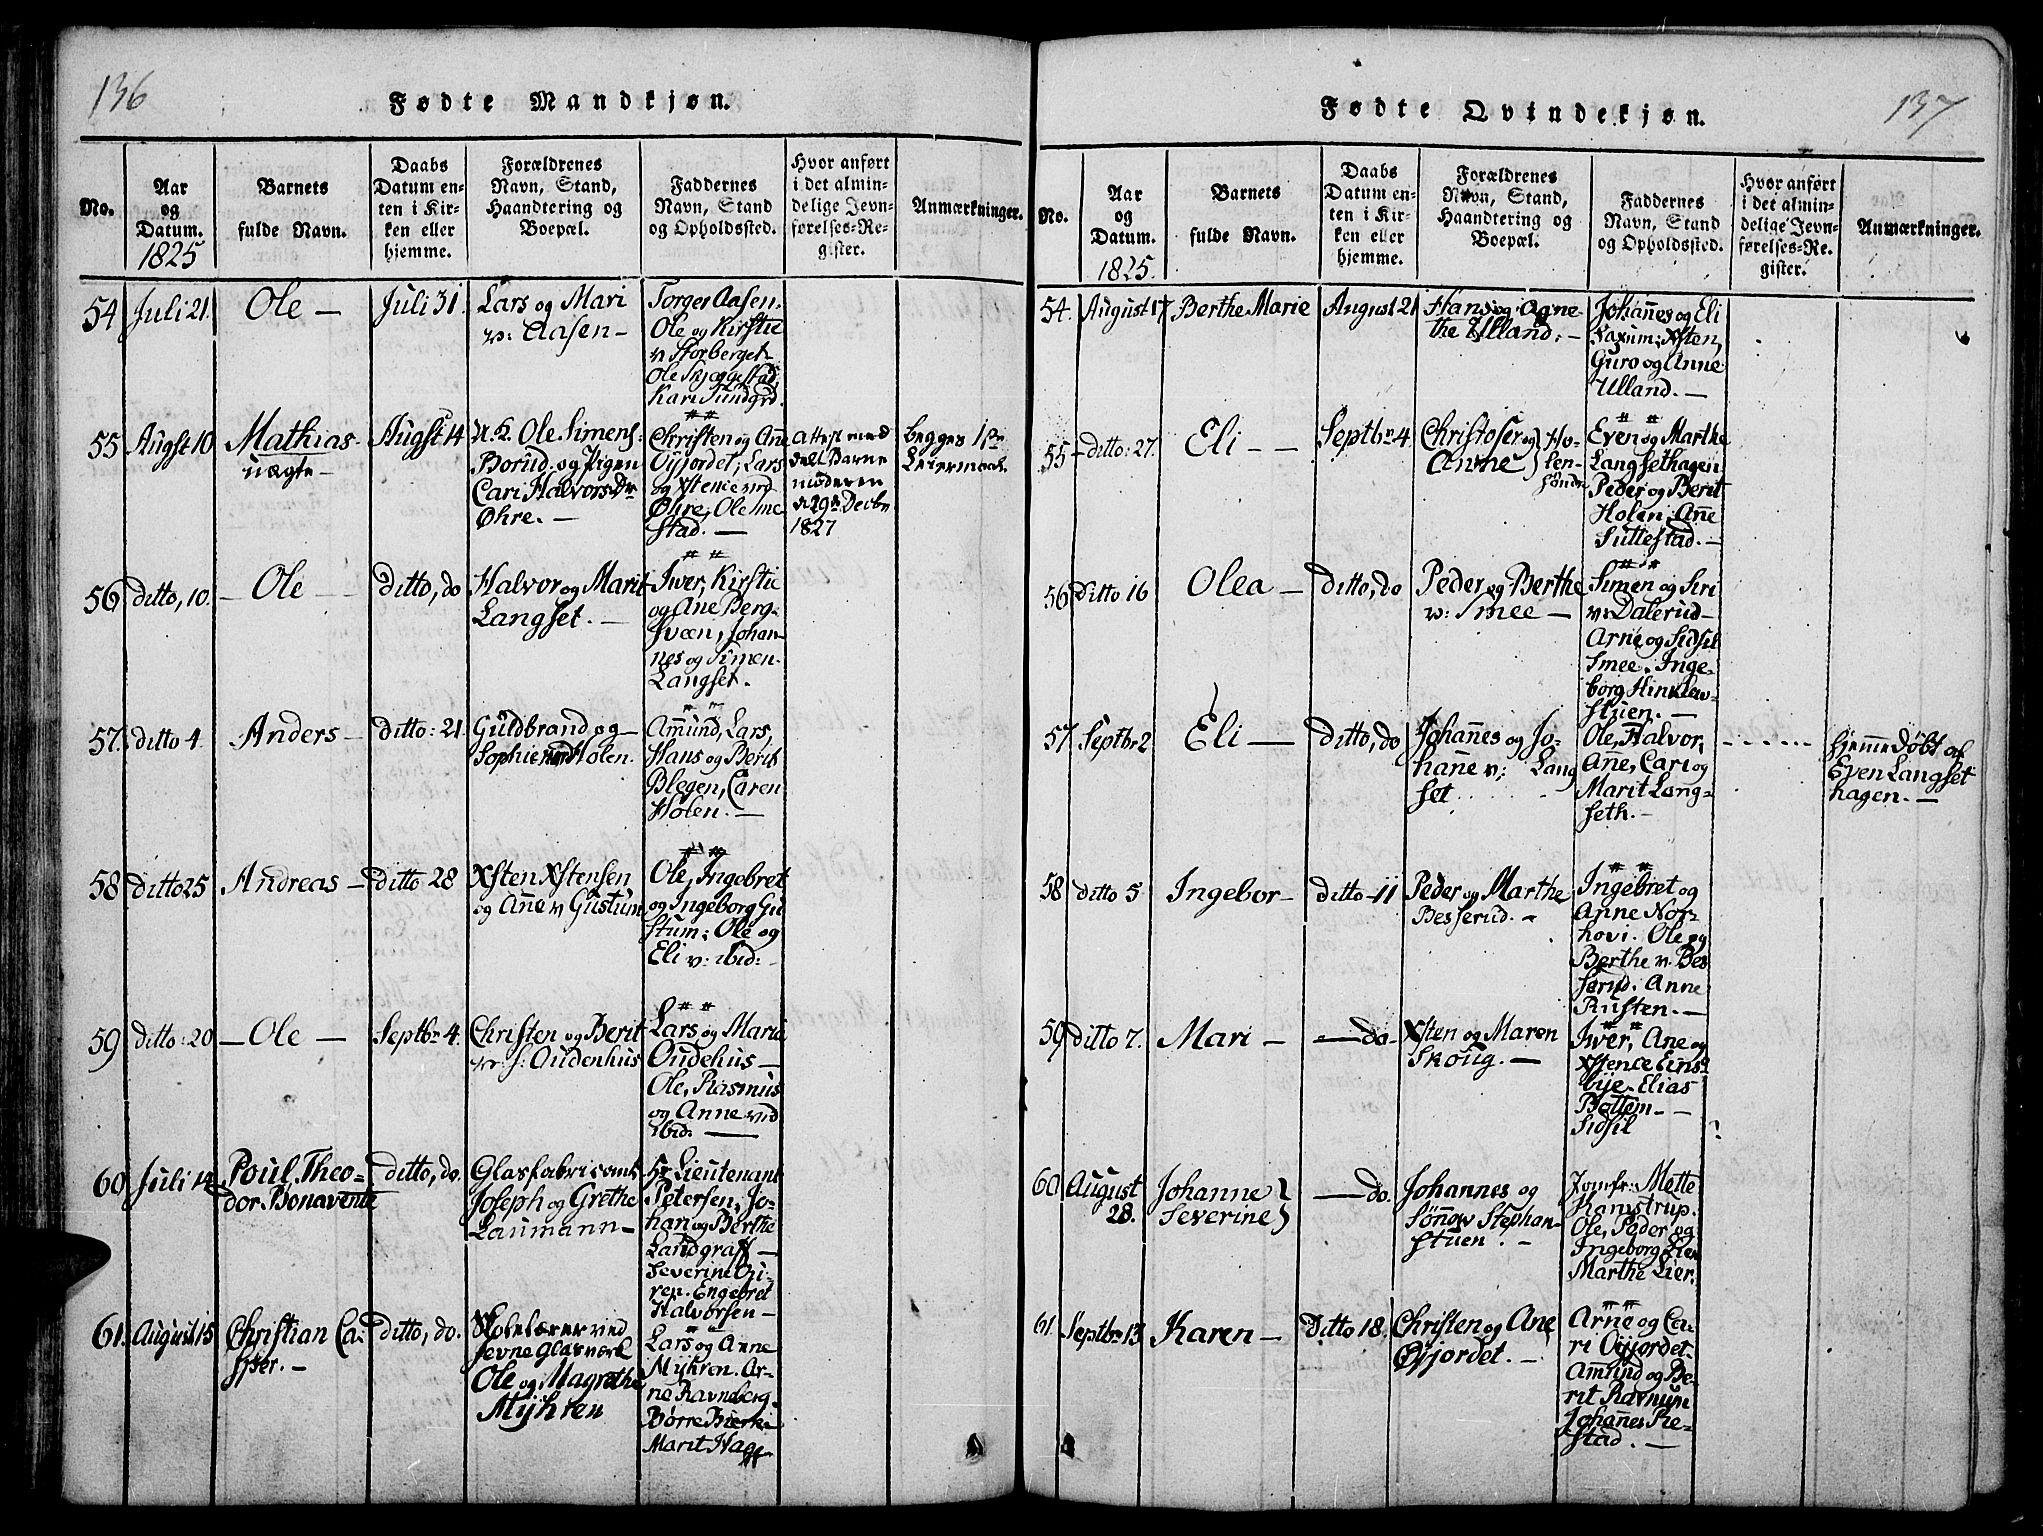 136
Fødte Mandkjøn.
No.
Aar
og
Datum.
1825
Barnets
fulde Navn.
Daabs
Datum en-
ten i Kir-
ken eller
hjemme.
Forældrenes
Navn, Stand,
Haandtering og
Boepæl.
Faddernes
Navn, Stand
og Opholdssted.
Hvor anført
i det almin-
delige Jevn-
førelses-Re-
gister.
Anmærkninger.
54
Juli 21.
Ole —
Juli 31.
Lars og Mari
v: Aasen —
Torger Aasen.
Ole og Kirstie
v Storberget
Ole Skjæggestad,
Kari Sundgrd.
55
Augst 10
Mathias
uægte
Augst 14
U. K. Ole Simens:
Borud. og Pigen
Cari Halvors Dr
Øhre. —
Christen og Aṅe
Oyjordet, Lars
og Xstence ved
Øhre, Ole Sme
stad. —
attest med
delt Barne
moderen
d 29de Decbr
1827
begges 1ste
Leiermaal.
56
ditto, 10.
— Ole —
ditto, do
Halvor og Marit
Langset. —
Iwer, Kirstie
og Ane Berg-
sveen, Johan-
nes og Simen
Langset.
57.
ditto 4.
Anders —
ditto: 21.
Guldbrand og
Sophie ved Holen.
Amund, Lars,
Hans og Berit
Blegen, Caren
Holen. —
58
ditto 25
Andreas —
ditto 28
Xsten Xstensen
og Aṅe v Gustum
Ole, Ingebret
og Ingeborg Gu
stum; Ole og
Eli v: ibid:
59
ditto: 20
— Ole —
Septbr 4.
Christen og Berit
v: S: Oudenhus
Lars og Maria
Oudehus —
Ole, Rasmus
og Anne ved
ibid: —
60
Juli 14
Poul Theo-
dor Bonavente
ditto, do.
Glasfabricant
Joseph og Grethe
Laumann —
Hr Lieutenant
Petersen, Jo-
han og Berthe
Landgraff —
Severine Gi-
ren. Engebret
Halvorsen —
61.
August 15
Christian Ca-
sper. —
ditto, do.
Skolelærer ved
Jevne Glasværk
Ole og Magrethe
Myhren
Lars og Anne
Myhren. Ar-
ne Ravneberg.
Børre Bierke
Marit Hage
137
Fødte Qvindekjøn.
No.
Aar
og
Datum.
1825.
Barnets
fulde Navn.
Daabs
Datum en-
ten i Kir-
ken eller
hjemme.
Forældrenes
Navn, Stand,
Haandtering og
Boepæl.
Faddernes
Navn, Stand
og Opholdssted.
Hvor anført
i det almin-
delige Jevn-
førelses-Re-
gister.
Anmærkninger.
54.
August 17
Berthe Marie
August 21
Hans og Agne-
the Ulland. —
Johaṅes og Eli
Saxum; Xsten,
Guro og Anne
Ulland. —
55
ditto: 27.
Eli — —
Septbr 4.
Christofer og
Anne
Ho-
len-
søndre
Even og Marthe
Langsethagen
Peder og Berit
Holen, Aṅe
Suttestad. —
56
Ditto 16
Olea —
ditto, do
Peder og Berthe
v: Smee —
Simen og Siri
v: Dalerud —
Arne og Sidsil
Smee. Inge-
borg Hinklew-
stuen. —
57
Septbr 2
Eli —
ditto, do
Johaṅes og Jo-
haṅe v: Lang
set
Ole, Halvor,
Ane, Cari og
Marit Lang-
seth. —
hjemmedøbt af
Even Langset
hagen. —
58
ditto 5.
Ingebor —
ditto 11
Peder og Marthe
Besserud. —
Ingebret og
Anne Nor-
hovi. Ole og
Berthe v: Bes
serud. Anne
Rusten. —
59
ditto 7.
Mari —
— do.
Xsten og Maren
Skoug. —
Iwer, Ane og
Xstence Eins
bye. Elias
Bottem —
Sidsil
60
August
28.
Johanne
Severine
— do.
Johannes og
Sönnøv Stephan-
stuen. —
Jomfr: Mette
Kamstrup.
Ole, Peder og
Ingeborg Lier
Marthe Lier.
61.
Septbr 13
Karen —
Ditto 18.
Christen og Ane
Oyjordet. —
Arne og Ca-
ri Oyjordet.
Amund og Be-
rit Ravnum
Johaṅes Re-
stad. —